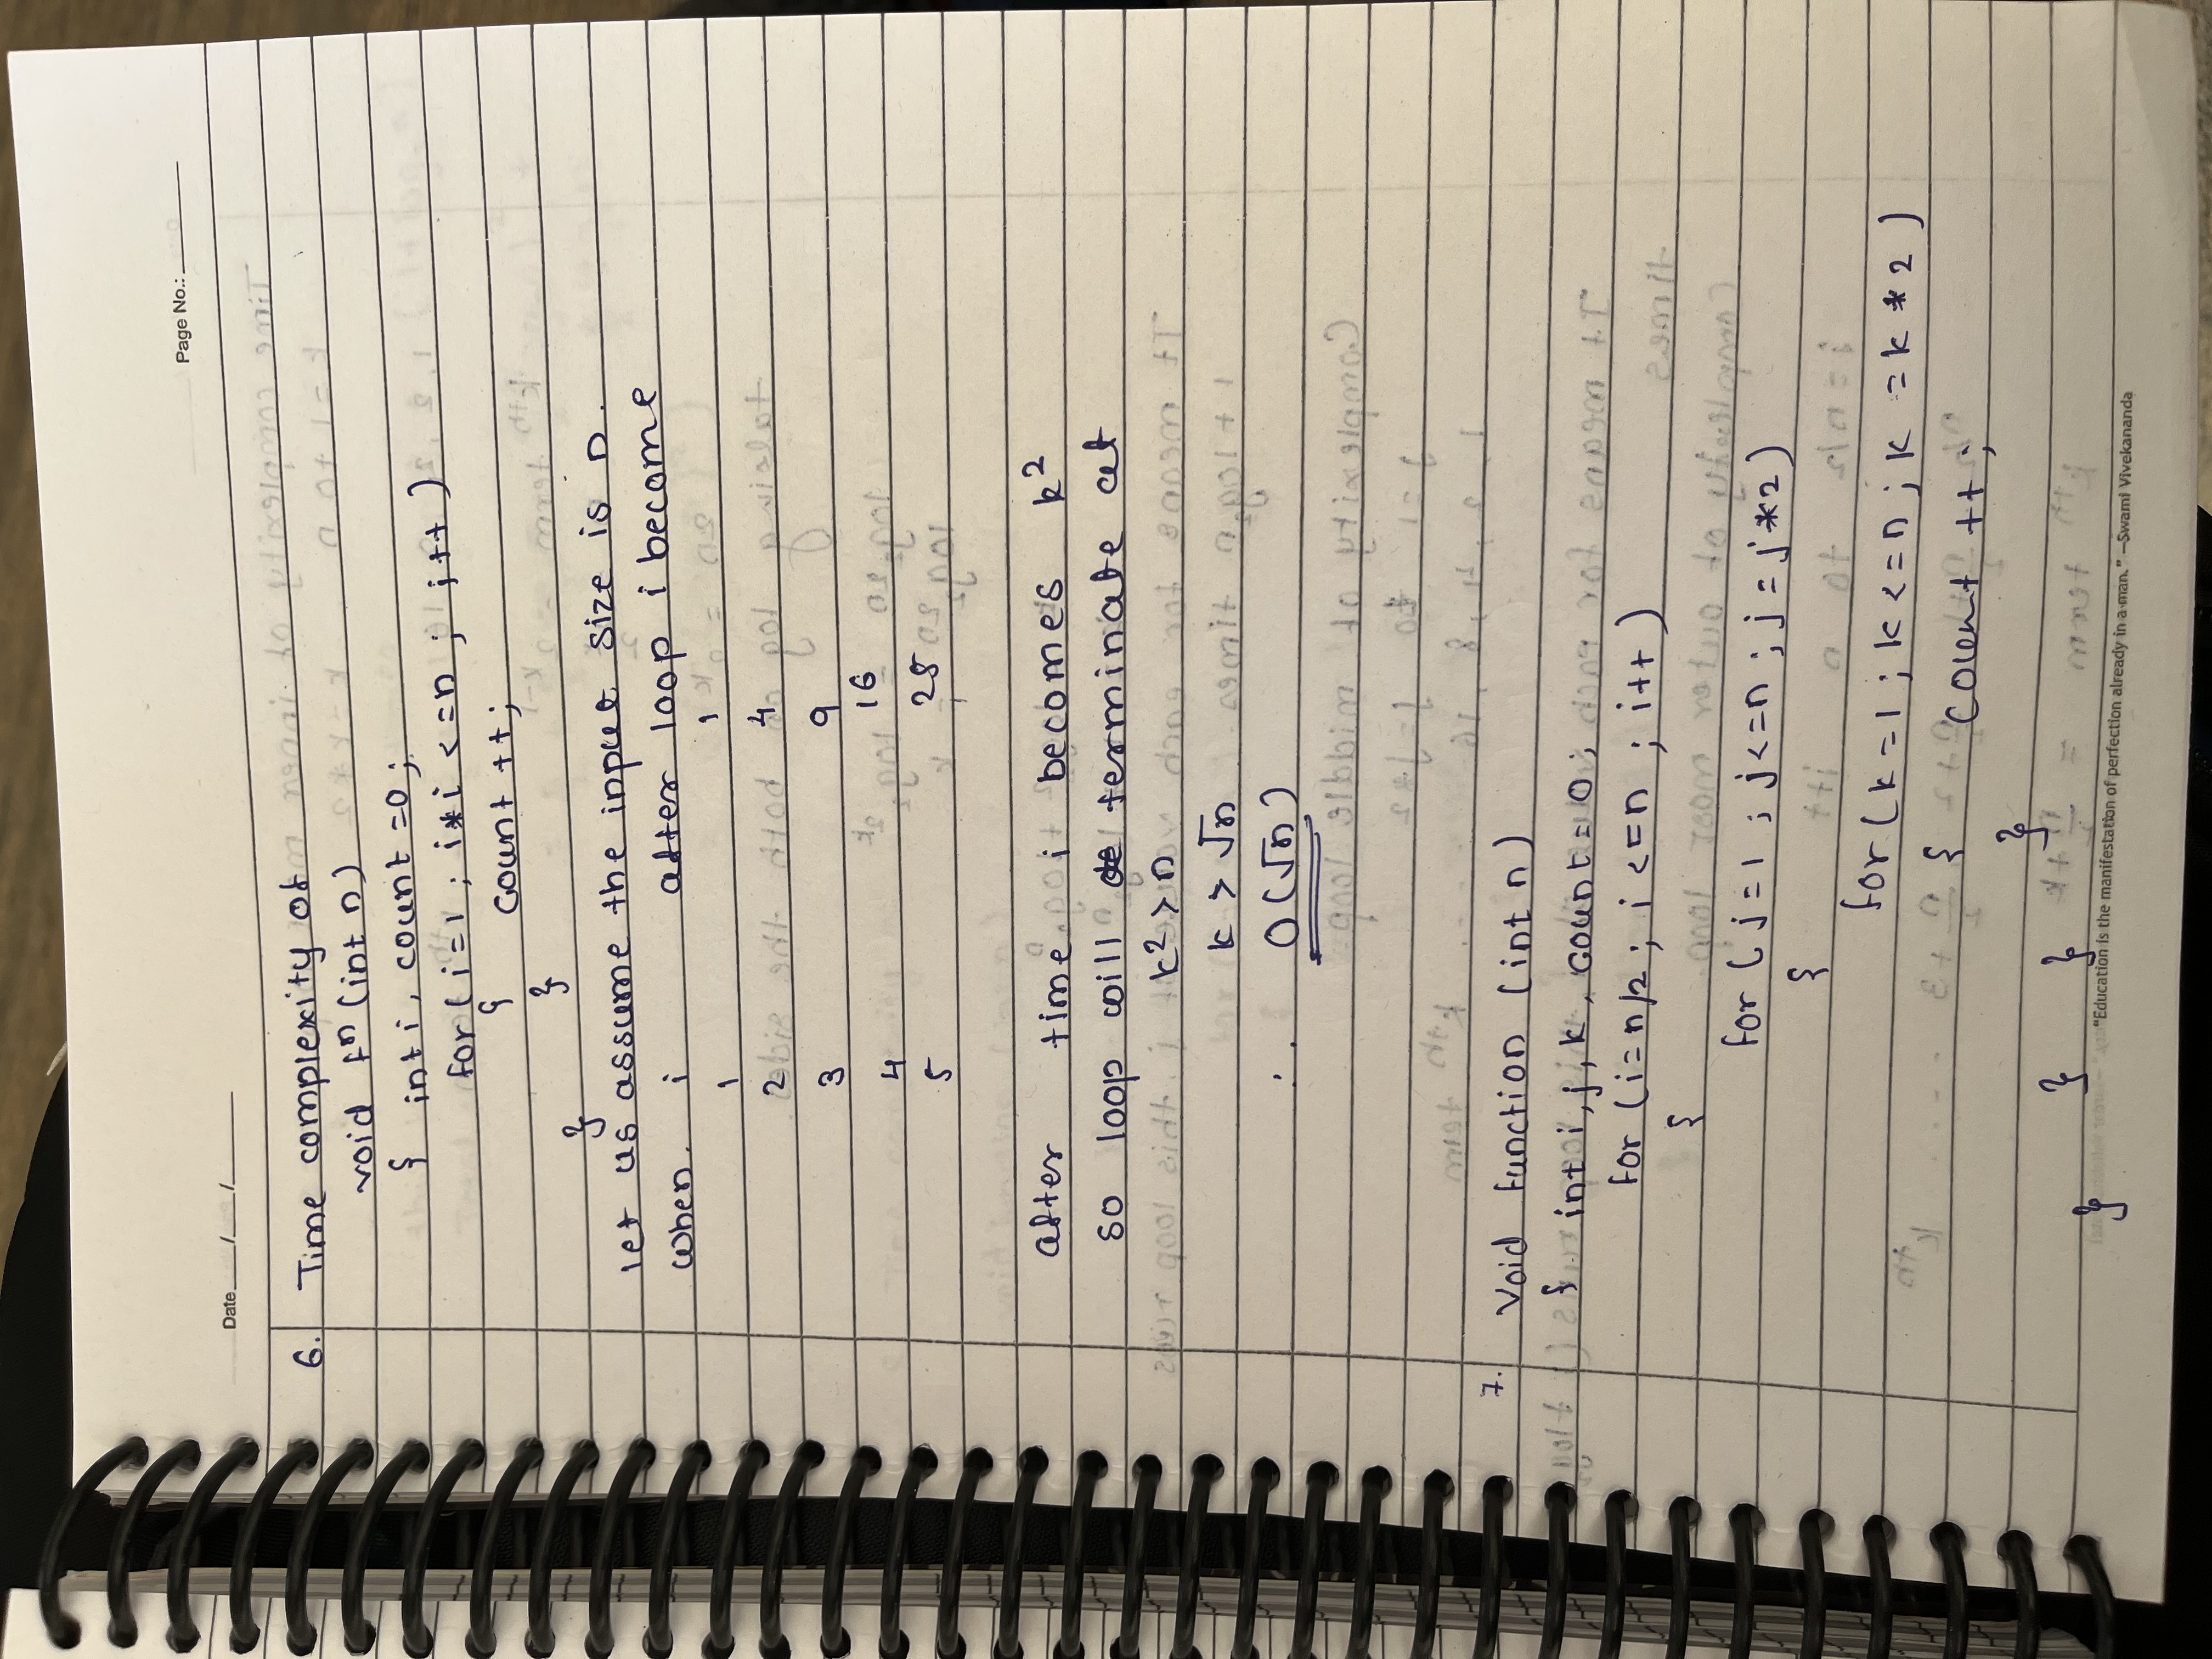 Page No.:
Date / /
6. Time complexity of
void fⁿ (int n)
{ int i, count = 0;
for (i=1 ; i*i <=n ; i++)
{ count ++;
}
}
let us assume the input size is n.
when. i after loop i become
1 1
2 4
3 9
4 16
5 25
after time i becomes k²
so loop will terminate at
k² > n
k > √n
∴ O(√n)
7. Void function (int n)
{ int i, j, k, count = 0;
for (i=n/2 ; i <=n ; i++)
{
for (j=1 ; j<=n ; j = j*2)
{
for (k=1 ; k<=n ; k = k * 2)
{ count ++;
}
} }
}
"Education is the manifestation of perfection already in a man." –Swami Vivekananda